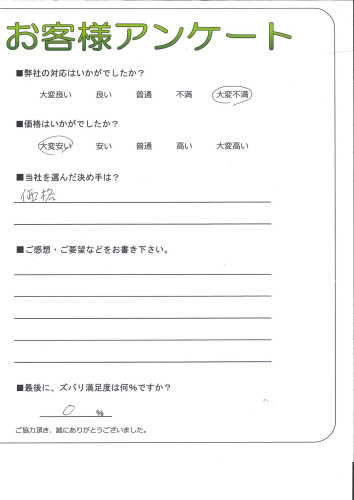 お客様アンケート
■弊社の対応はいかがでしたか？
大変良い 良い 普通 不満 大変不満
■価格はいかがでしたか？
大変安い 安い 普通 高い 大変高い
■当社を選んだ決め手は？
価格
■ご感想・ご要望などをお書き下さい。
■最後に、ズバリ満足度は何%ですか？
0 %
ご協力頂き、誠にありがとうございました。